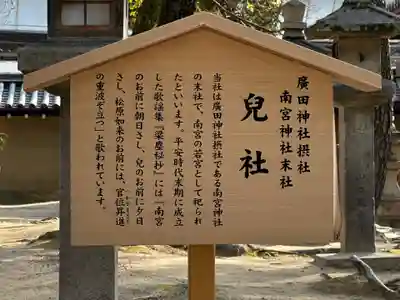 廣田神社摂社
南宮神社末社
兒社
当社は廣田神社摂社である南宮神社
の末社で、南宮の若宮として祀られ
たといいます。平安時代末期に成立
した歌謡集『梁塵秘抄』には『南宮
のお前に朝日さし、児のお前に夕日
さし、松原如来のお前には、官位昇進
の重波ぞ立つ』と歌われています。